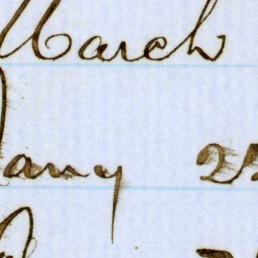 March
Jany 25